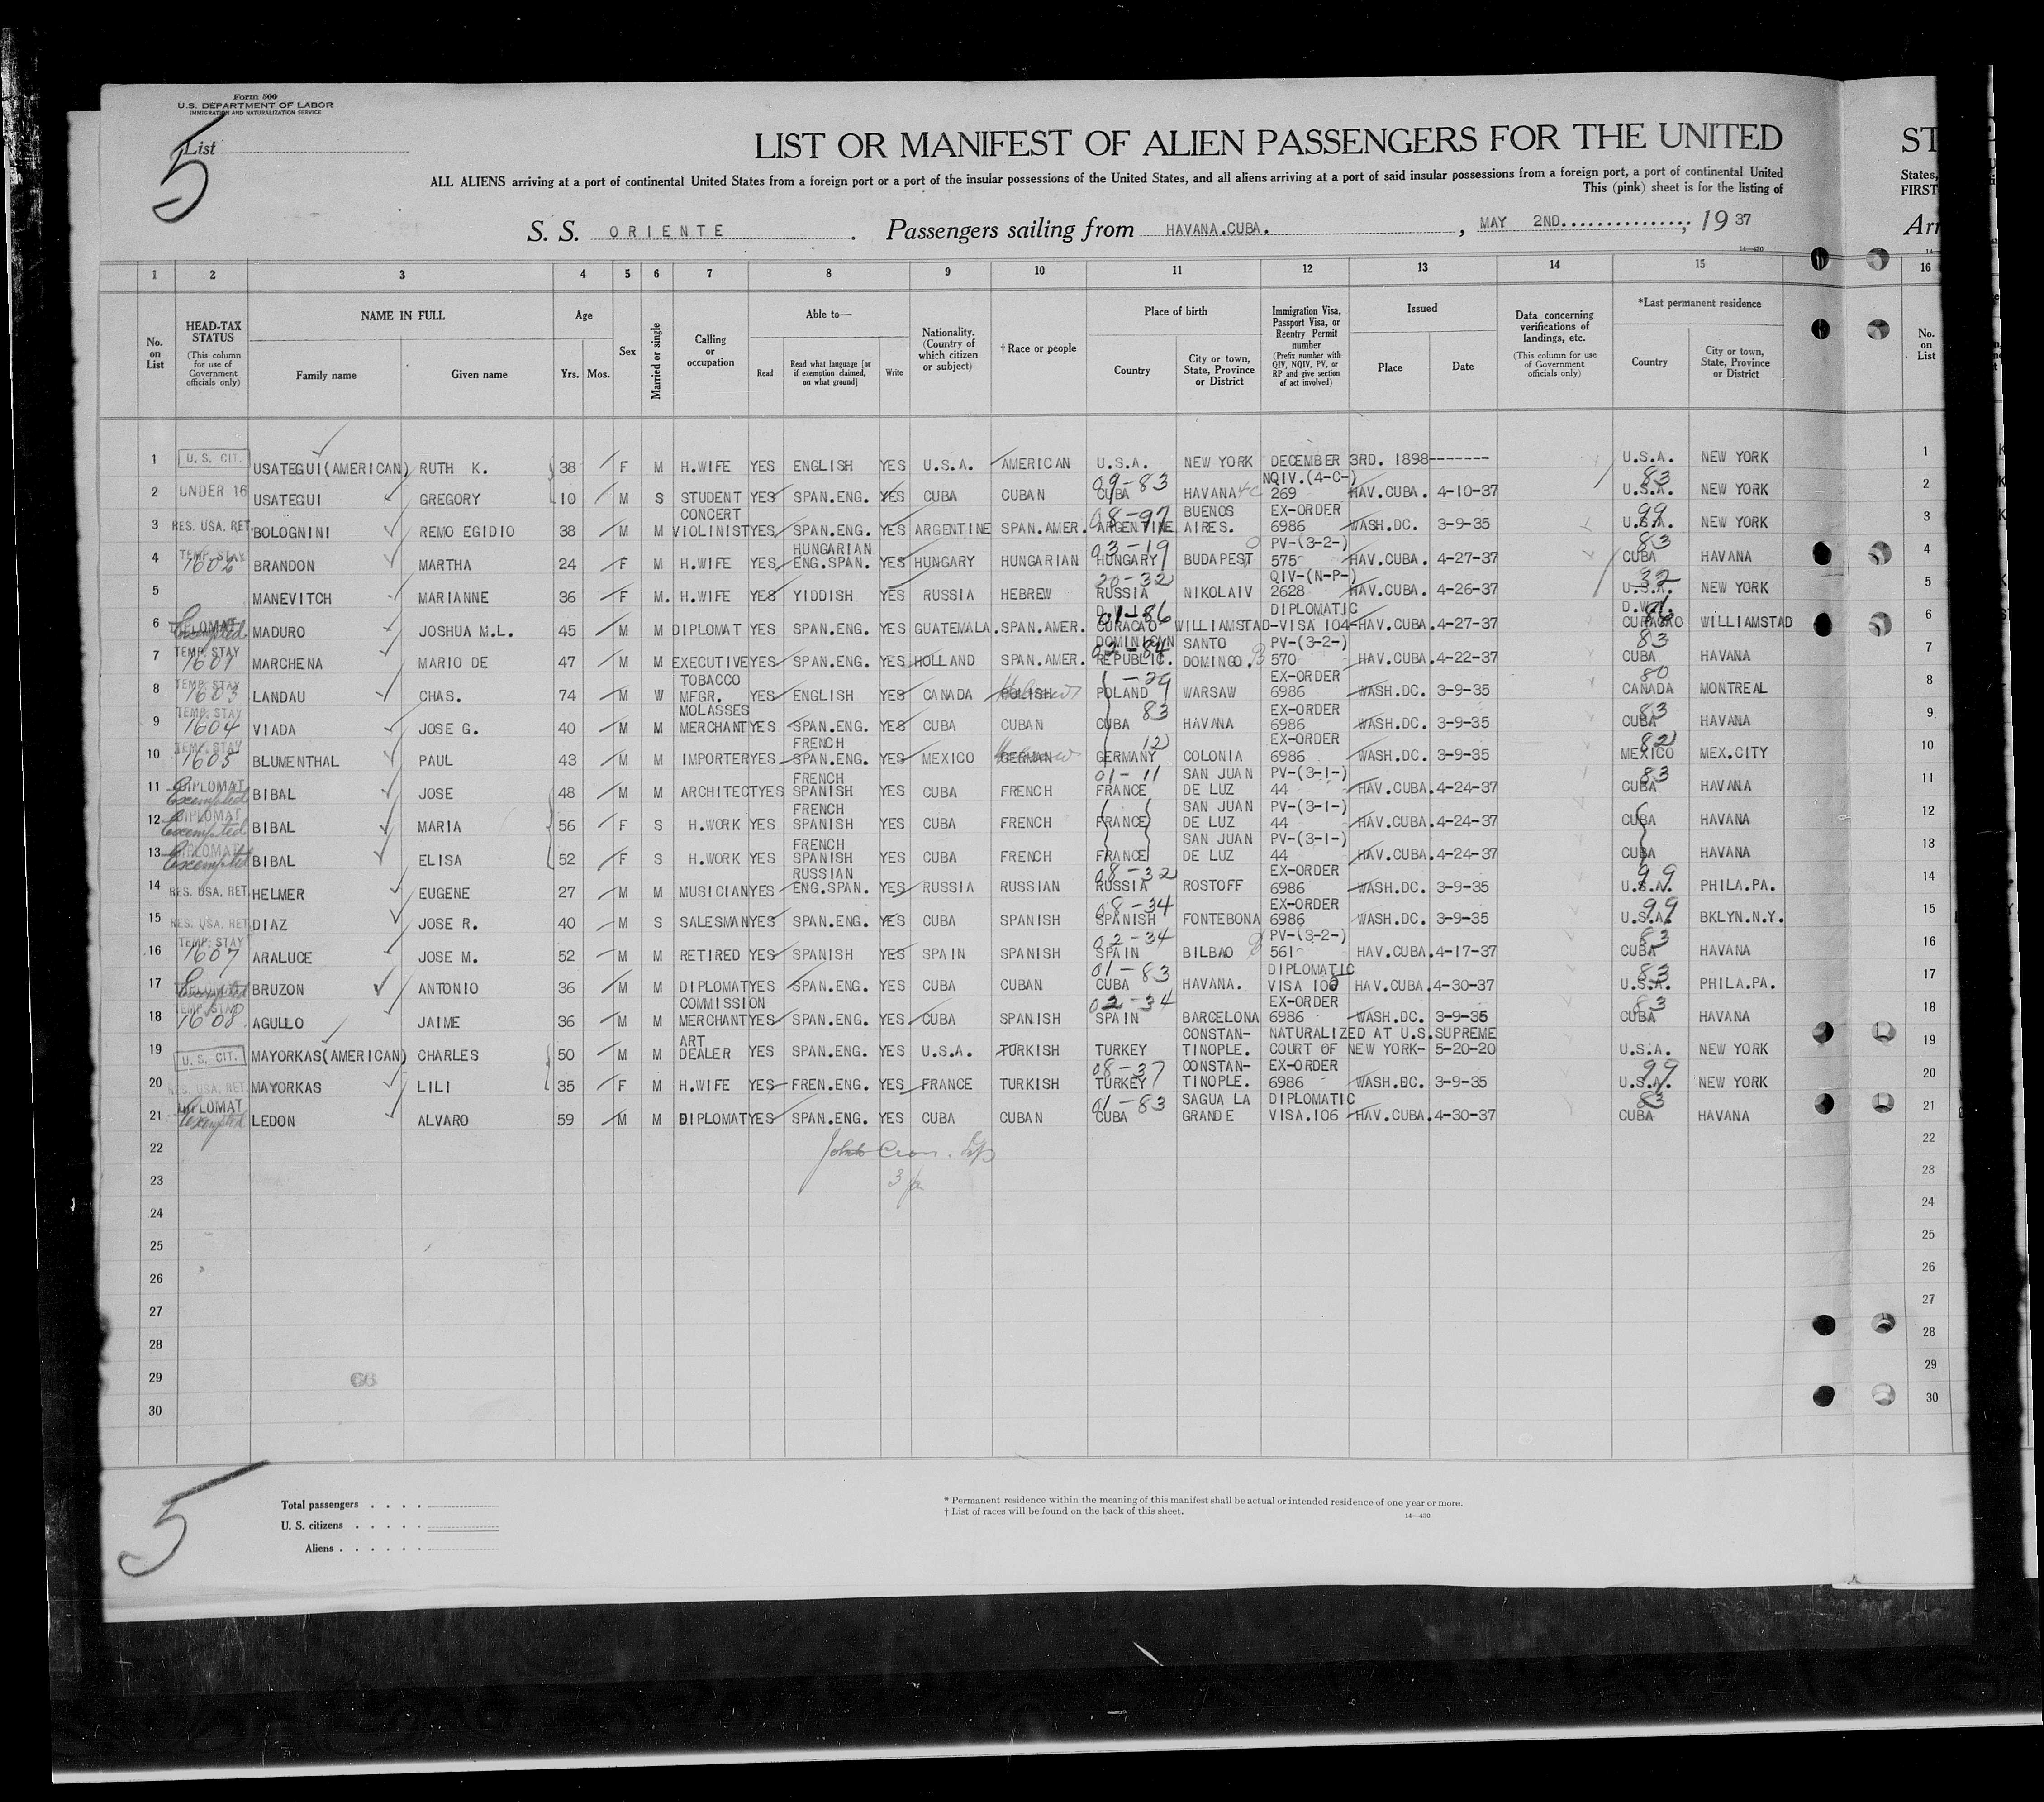 Form 500
U.S. DEPARTMENT OF LABOR
IMMIGRATION AND NATURALIZATION SERVICE
List
5
LIST OR MANIFEST OF ALIEN PASSENGERS FOR THE UNITED
ST
ALL ALIENS arriving at a port of continental United States from a foreign port or a port of the insular possessions of the United States, and all aliens arriving at a port of said insular possessions from a foreign port, a port of continental United
States,
This (pink) sheet is for the listing of
FIRST
S. S. ORIENTE. Passengers sailing from HAVANA.CUBA. , MAY 2ND. , 19 37
Arr
14—430
1 2 3 4 5 6 7 8 9 10 11 12 13 14 15 16
No. on List
HEAD-TAX STATUS (This column for use of Government officials only)
NAME IN FULL
Family name Given name
Age
Yrs. Mos.
Sex
Married or single
Calling or occupation
Able to—
Read
Read what language [or if exemption claimed, on what ground]
Write
Nationality. (Country of which citizen or subject)
† Race or people
Place of birth
Country
City or town, State, Province or District
Immigration Visa, Passport Visa, or Reentry Permit number (Prefix number with QIV, NQIV, PV, or RP and give section of act involved)
Issued
Place Date
Data concerning verifications of landings, etc. (This column for use of Government officials only)
*Last permanent residence
Country
City or town, State, Province or District
No. on List
1 U. S. CIT. USATEGUI(AMERICAN) RUTH K. 38 F M H.WIFE YES ENGLISH YES U.S.A. AMERICAN U.S.A. NEW YORK DECEMBER 3RD. 1898------- U.S.A. NEW YORK 1
2 UNDER 16 USATEGUI GREGORY 10 M S STUDENT YES SPAN.ENG. YES CUBA CUBAN 09-83 CUBA HAVANA 4C NQIV.(4-C-) 269 HAV.CUBA. 4-10-37 83 U.S.A. NEW YORK 2
3 RES. USA. RET. BOLOGNINI REMO EGIDIO 38 M M CONCERT VIOLINIST YES SPAN.ENG. YES ARGENTINE SPAN.AMER. 08-97 ARGENTINE BUENOS AIRES. EX-ORDER 6986 WASH.DC. 3-9-35 99 U.S.A. NEW YORK 3
4 TEMP. STAY 1602 BRANDON MARTHA 24 F M H.WIFE YES HUNGARIAN ENG.SPAN. YES HUNGARY HUNGARIAN 03-19 HUNGARY BUDAPEST PV-(3-2-) 575 HAV.CUBA. 4-27-37 83 CUBA HAVANA 4
5 MANEVITCH MARIANNE 36 F M. H.WIFE YES YIDDISH YES RUSSIA HEBREW 20-32 RUSSIA NIKOLAIV QIV-(N-P-) 2628 HAV.CUBA. 4-26-37 32 U.S.A. NEW YORK 5
6 DIPLOMAT Exempted MADURO JOSHUA M.L. 45 M M DIPLOMAT YES SPAN.ENG. YES GUATEMALA. SPAN.AMER. D.W.I. 01-86 CURACAO WILLIAMSTAD- DIPLOMATIC VISA 104 HAV.CUBA. 4-27-37 D.W.I. 86 CURACRO WILLIAMSTAD 6
7 TEMP. STAY 1601 MARCHENA MARIO DE 47 M M EXECUTIVE YES SPAN.ENG. YES HOLLAND SPAN.AMER. 02-84 DOMINICAN REPUBLIC. SANTO DOMINGO. PV-(3-2-) 570 HAV.CUBA. 4-22-37 83 CUBA HAVANA 7
8 TEMP. STAY 1603 LANDAU CHAS. 74 M W TOBACCO MFGR. YES ENGLISH YES CANADA POLISH Hebrew -29 POLAND WARSAW EX-ORDER 6986 WASH.DC. 3-9-35 80 CANADA MONTREAL 8
9 TEMP. STAY 1604 VIADA JOSE G. 40 M M MOLASSES MERCHANT YES SPAN.ENG. YES CUBA CUBAN 83 CUBA HAVANA EX-ORDER 6986 WASH.DC. 3-9-35 83 CUBA HAVANA 9
10 TEMP. STAY 1605 BLUMENTHAL PAUL 43 M M IMPORTER YES FRENCH SPAN.ENG. YES MEXICO GERMAN Hebrew 12 GERMANY COLONIA EX-ORDER 6986 WASH.DC. 3-9-35 82 MEXICO MEX.CITY 10
11 DIPLOMAT Exempted BIBAL JOSE 48 M M ARCHITECT YES FRENCH SPANISH YES CUBA FRENCH 01-11 FRANCE SAN JUAN DE LUZ PV-(3-1-) 44 HAV.CUBA. 4-24-37 83 CUBA HAVANA 11
12 DIPLOMAT Exempted BIBAL MARIA 56 F S H.WORK YES FRENCH SPANISH YES CUBA FRENCH FRANCE SAN JUAN DE LUZ PV-(3-1-) 44 HAV.CUBA. 4-24-37 CUBA HAVANA 12
13 DIPLOMAT Exempted BIBAL ELISA 52 F S H.WORK YES FRENCH SPANISH YES CUBA FRENCH FRANCE SAN JUAN DE LUZ PV-(3-1-) 44 HAV.CUBA. 4-24-37 CUBA HAVANA 13
14 RES. USA. RET. HELMER EUGENE 27 M M MUSICIAN YES RUSSIAN ENG.SPAN. YES RUSSIA RUSSIAN 08-32 RUSSIA ROSTOFF EX-ORDER 6986 WASH.DC. 3-9-35 99 U.S.A. PHILA.PA. 14
15 RES. USA. RET. DIAZ JOSE R. 40 M S SALESMAN YES SPAN.ENG. YES CUBA SPANISH 08-34 SPANISH FONTEBONA EX-ORDER 6986 WASH.DC. 3-9-35 99 U.S.A. BKLYN.N.Y. 15
16 TEMP. STAY 1607 ARALUCE JOSE M. 52 M M RETIRED YES SPANISH YES SPAIN SPANISH 02-34 SPAIN BILBAO PV-(3-2-) 561 HAV.CUBA. 4-17-37 83 CUBA HAVANA 16
17 Exempted BRUZON ANTONIO 36 M M DIPLOMAT YES SPAN.ENG. YES CUBA CUBAN 01-83 CUBA HAVANA. DIPLOMATIC VISA 100 HAV.CUBA. 4-30-37 83 U.S.A. PHILA.PA. 17
18 TEMP. STAY 1608 AGULLO JAIME 36 M M COMMISSION MERCHANT YES SPAN.ENG. YES CUBA SPANISH 02-34 SPAIN BARCELONA EX-ORDER 6986 WASH.DC. 3-9-35 83 CUBA HAVANA 18
19 U. S. CIT. MAYORKAS(AMERICAN) CHARLES 50 M M ART DEALER YES SPAN.ENG. YES U.S.A. TURKISH TURKEY CONSTAN- TINOPLE. NATURALIZED AT U.S.SUPREME COURT OF NEW YORK- 5-20-20 U.S.A. NEW YORK 19
20 RES. USA. RET. MAYORKAS LILI 35 F M H.WIFE YES FREN.ENG. YES FRANCE TURKISH 08-37 TURKEY CONSTAN- TINOPLE. EX-ORDER 6986 WASH.DC. 3-9-35 99 U.S.A. NEW YORK 20
21 DIPLOMAT Exempted LEDON ALVARO 59 M M DIPLOMAT YES SPAN.ENG. YES CUBA CUBAN 01-83 CUBA SAGUA LA GRANDE DIPLOMATIC VISA.106 HAV.CUBA. 4-30-37 83 CUBA HAVANA 21
22 22
23 23
24 24
25 25
26 26
27 27
28 28
29 29
30 30
5
Total passengers . . . .
U. S. citizens . . . . .
Aliens . . . . . .
* Permanent residence within the meaning of this manifest shall be actual or intended residence of one year or more.
† List of races will be found on the back of this sheet.
14—430